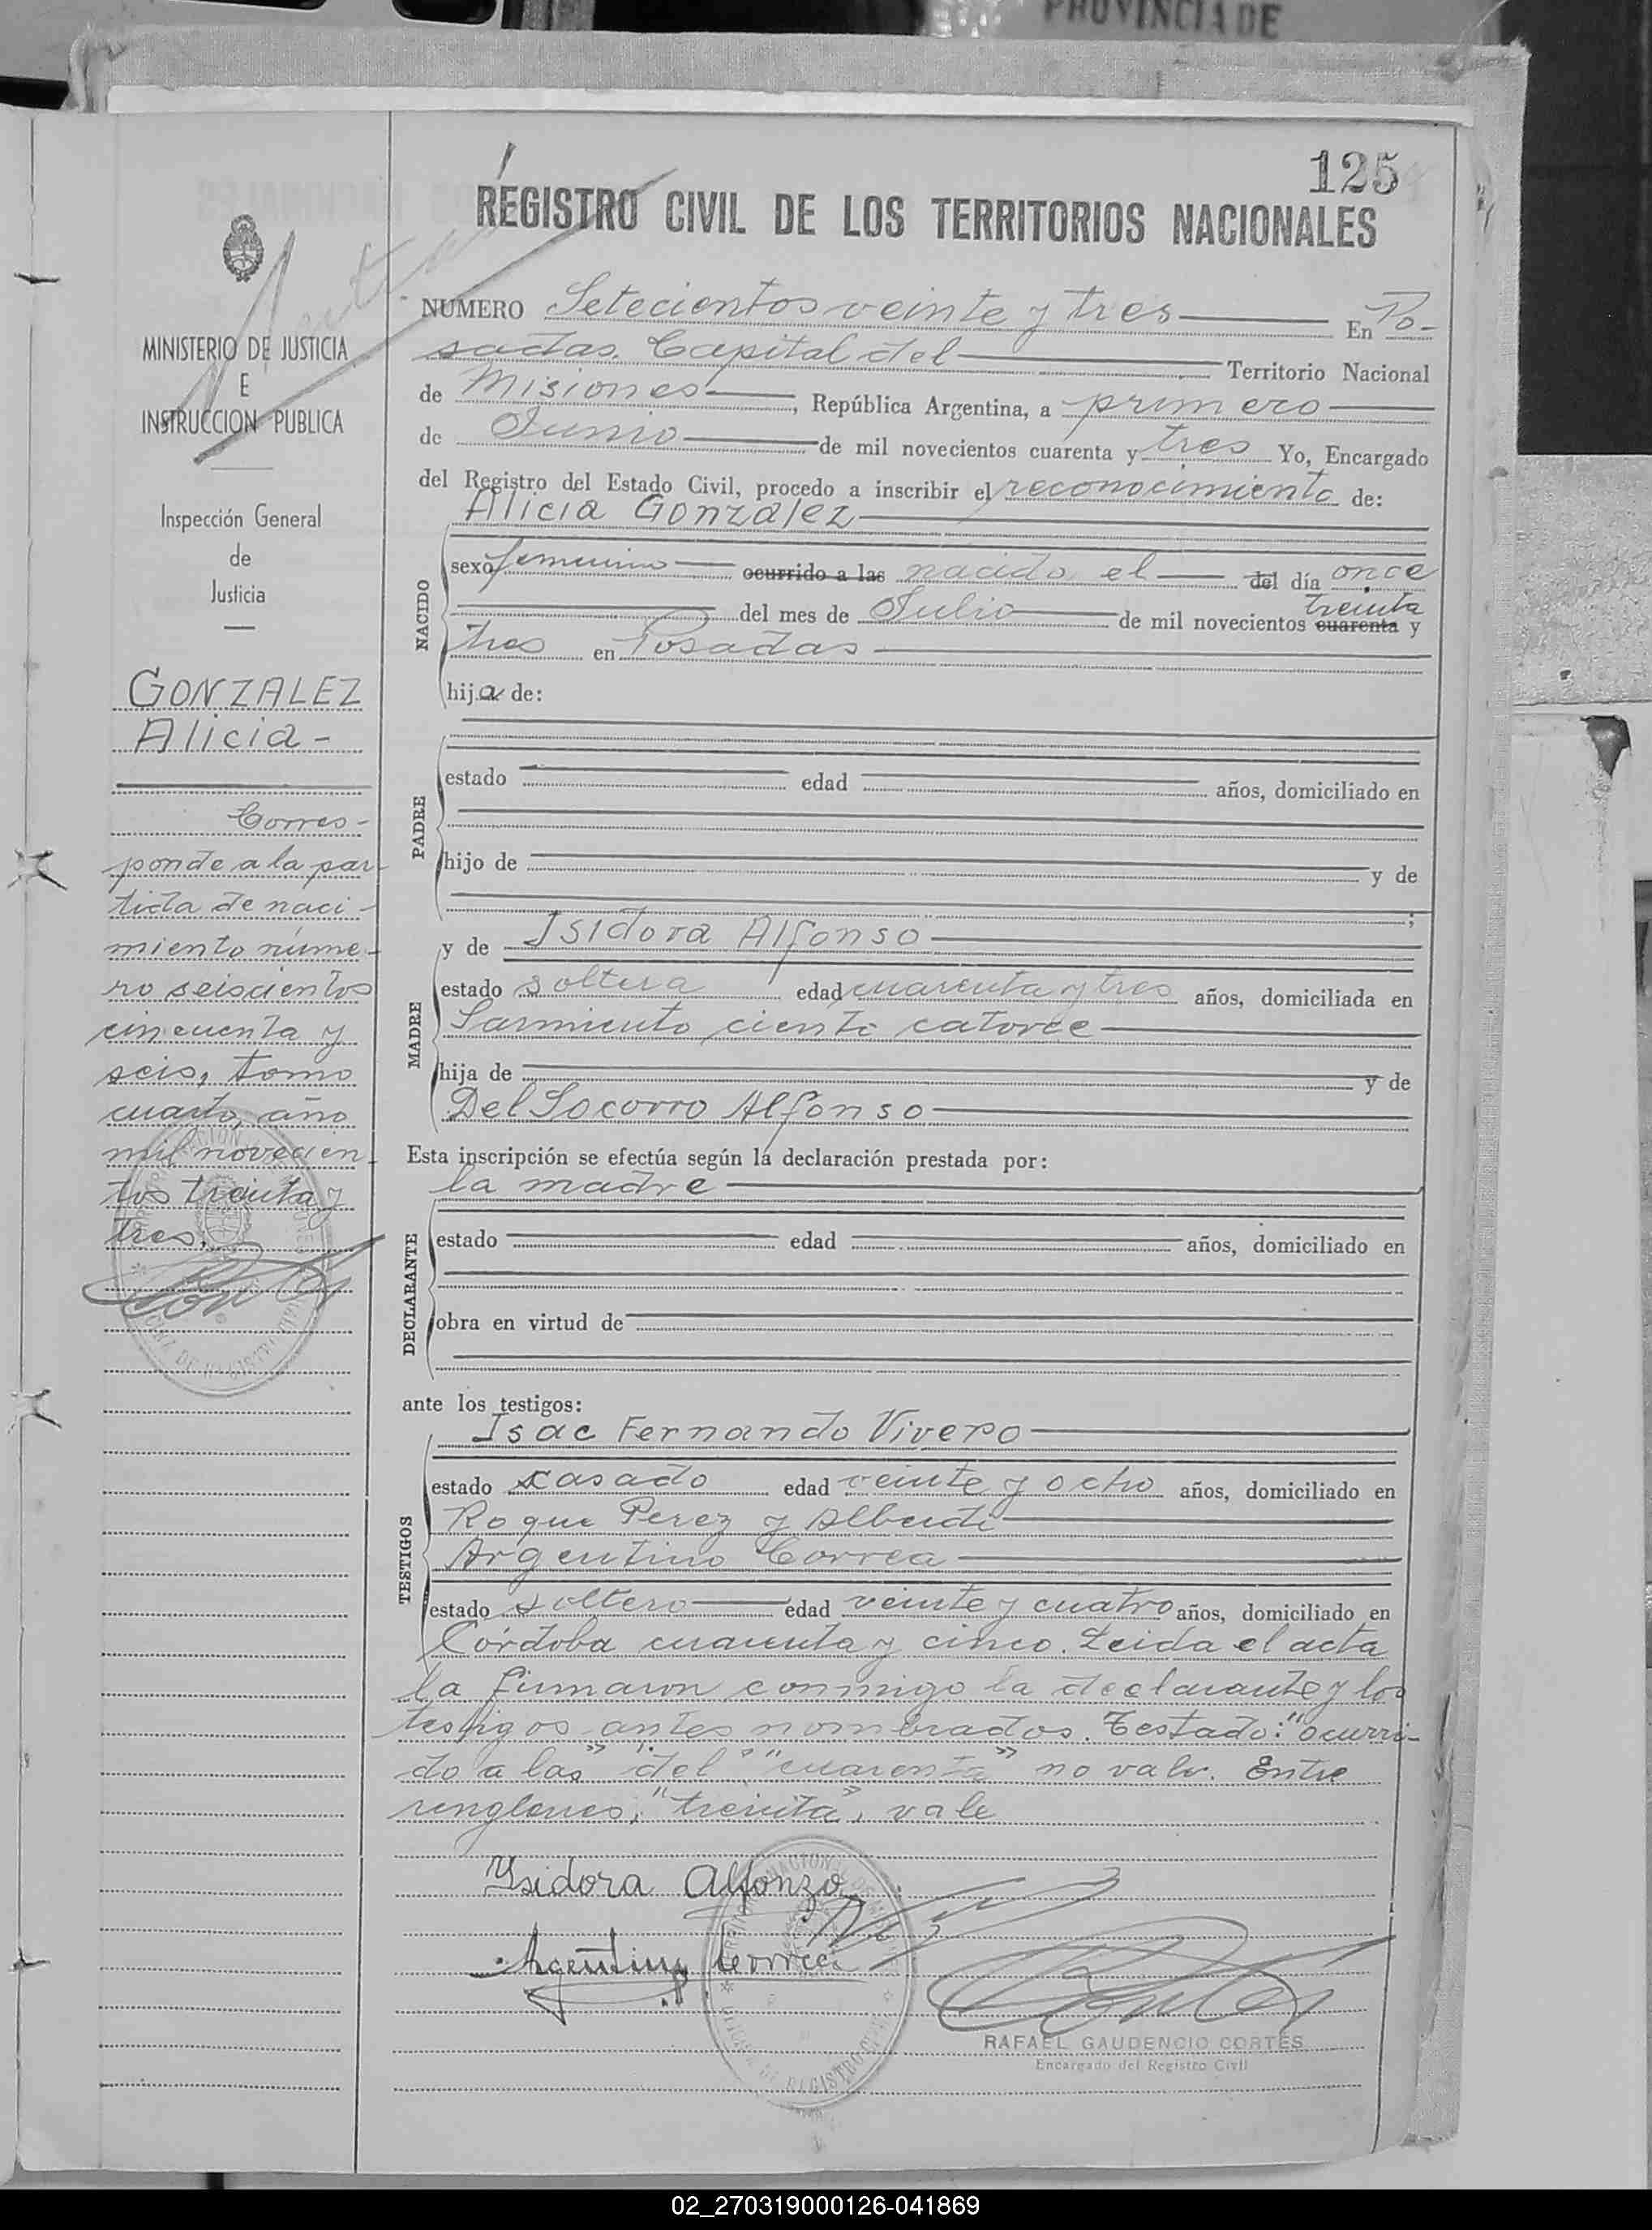 PROVINCIA DE
125
REGISTRO CIVIL DE LOS TERRITORIOS NACIONALES
MINISTERIO DE JUSTICIA
E
INSTRUCCION PUBLICA
Inspección General
de
Justicia
GONZALEZ
Alicia-
Corres-
ponde a la par-
tida de naci-
miento núme-
ro seiscientos
cincuenta y
seis, tomo
cuarto, año
mil novecien-
tos treinta y
tres.
NUMERO Setecientos veinte y tres En Po-
sadas. Capital del Territorio Nacional
de Misiones, República Argentina, a primero
de Junio de mil novecientos cuarenta y tres Yo, Encargado
del Registro del Estado Civil, procedo a inscribir el reconocimiento de:
Alicia Gonzalez
NACIDO
sexo femenino ocurrido a las nacida el del día once
treinta
del mes de Julio de mil novecientos cuarenta y
tres en Posadas
hija de:
PADRE
estado edad años, domiciliado en
hijo de y de
;
y de Isidora Alfonso
MADRE
estado soltera edad cuarenta y tres años, domiciliada en
Sarmiento ciento catorce
hija de y de
Del Socorro Alfonso
Esta inscripción se efectúa según la declaración prestada por:
la madre
DECLARANTE
estado edad años, domiciliado en
obra en virtud de
ante los testigos:
Isac Fernando Vivero
TESTIGOS
estado casado edad veinte y ocho años, domiciliado en
Roque Perez y Alberdi
Argentino Correa
estado soltero edad veinte y cuatro años, domiciliado en
Córdoba cuarenta y cinco. Leida el acta
la firmaron conmigo la declarante y los
testigos antes nombrados. Testado: "ocurri-
do a las" "del" "cuarenta" no vale. Entre
renglones: "treinta", vale
Ysidora Alfonzo
Argentino Correa
RAFAEL GAUDENCIO CORTÉS
Encargado del Registro Civil
02_270319000126-041869